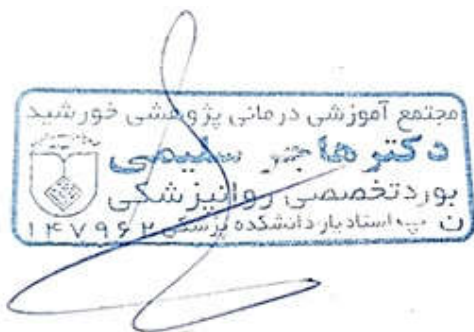 مجتمع آموزشی درمانی پژوهشی خورشید
دکتر هاجر سلیمی
بورد تخصصی روانپزشکی
استادیار دانشکده پزشکی ۱۴۷۹۶۲